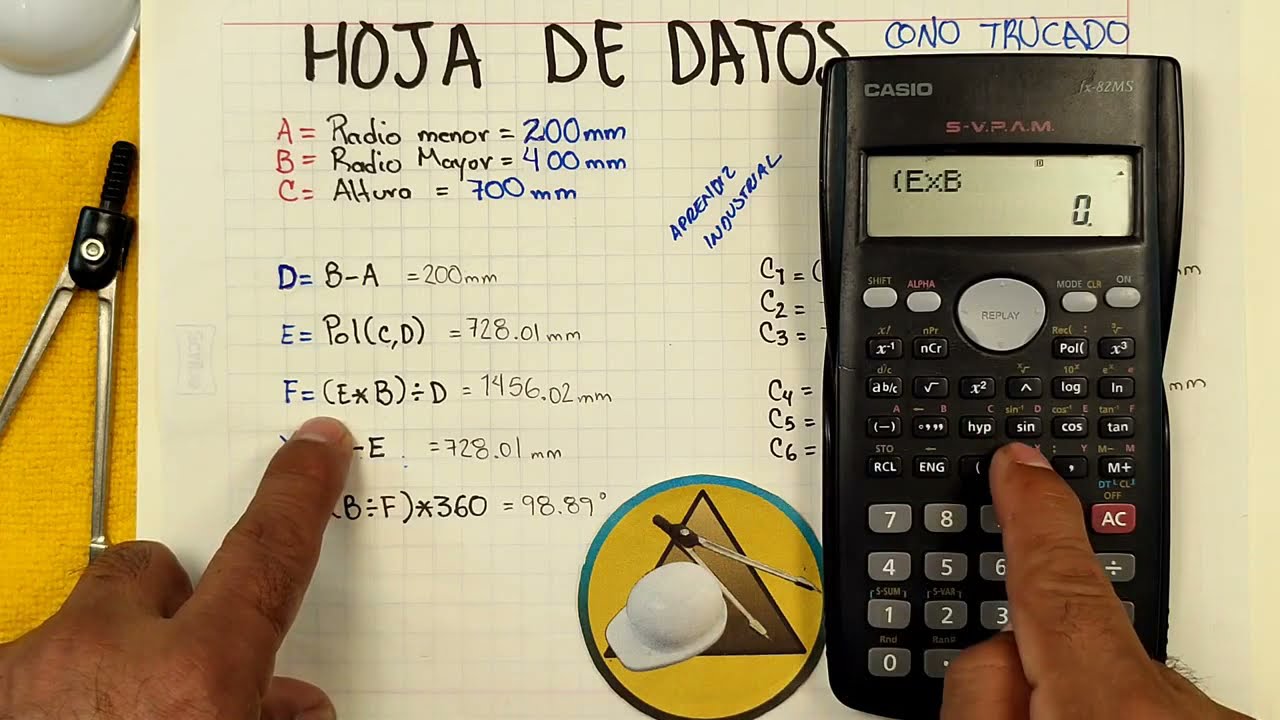 HOJA DE DATOS
CONO TRUCADO
A = Radio menor = 200 mm
B = Radio Mayor = 400 mm
C = Altura = 700 mm
APRENDIZ
INDUSTRIAL
D = B-A = 200 mm
E = Pol(C,D) = 728.01 mm
F = (E*B)÷D = 1456.02 mm
-E = 728.01 mm
(B÷F)*360 = 98.89°
C1 = (
C2 =
C3 =
C4 =
C5 =
C6 =
mm
mm
CASIO
fx-82MS
S-V.P.A.M.
D
(E×B
0.
SHIFT ALPHA MODE CLR ON
REPLAY
x! nPr Rec( : ³√
x⁻¹ nCr Pol( x³
d/c 10ˣ eˣ e
ab/c √ x² ^ log ln
A ← B C sin⁻¹ D cos⁻¹ E tan⁻¹ F
(−) °,,, hyp sin cos tan
STO ← X ; Y M− M
RCL ENG ( , M+
DT CL
OFF
7 8 AC
4 5 6 ÷
S-SUM S-VAR
1 2 3
Rnd Ran#
0 •